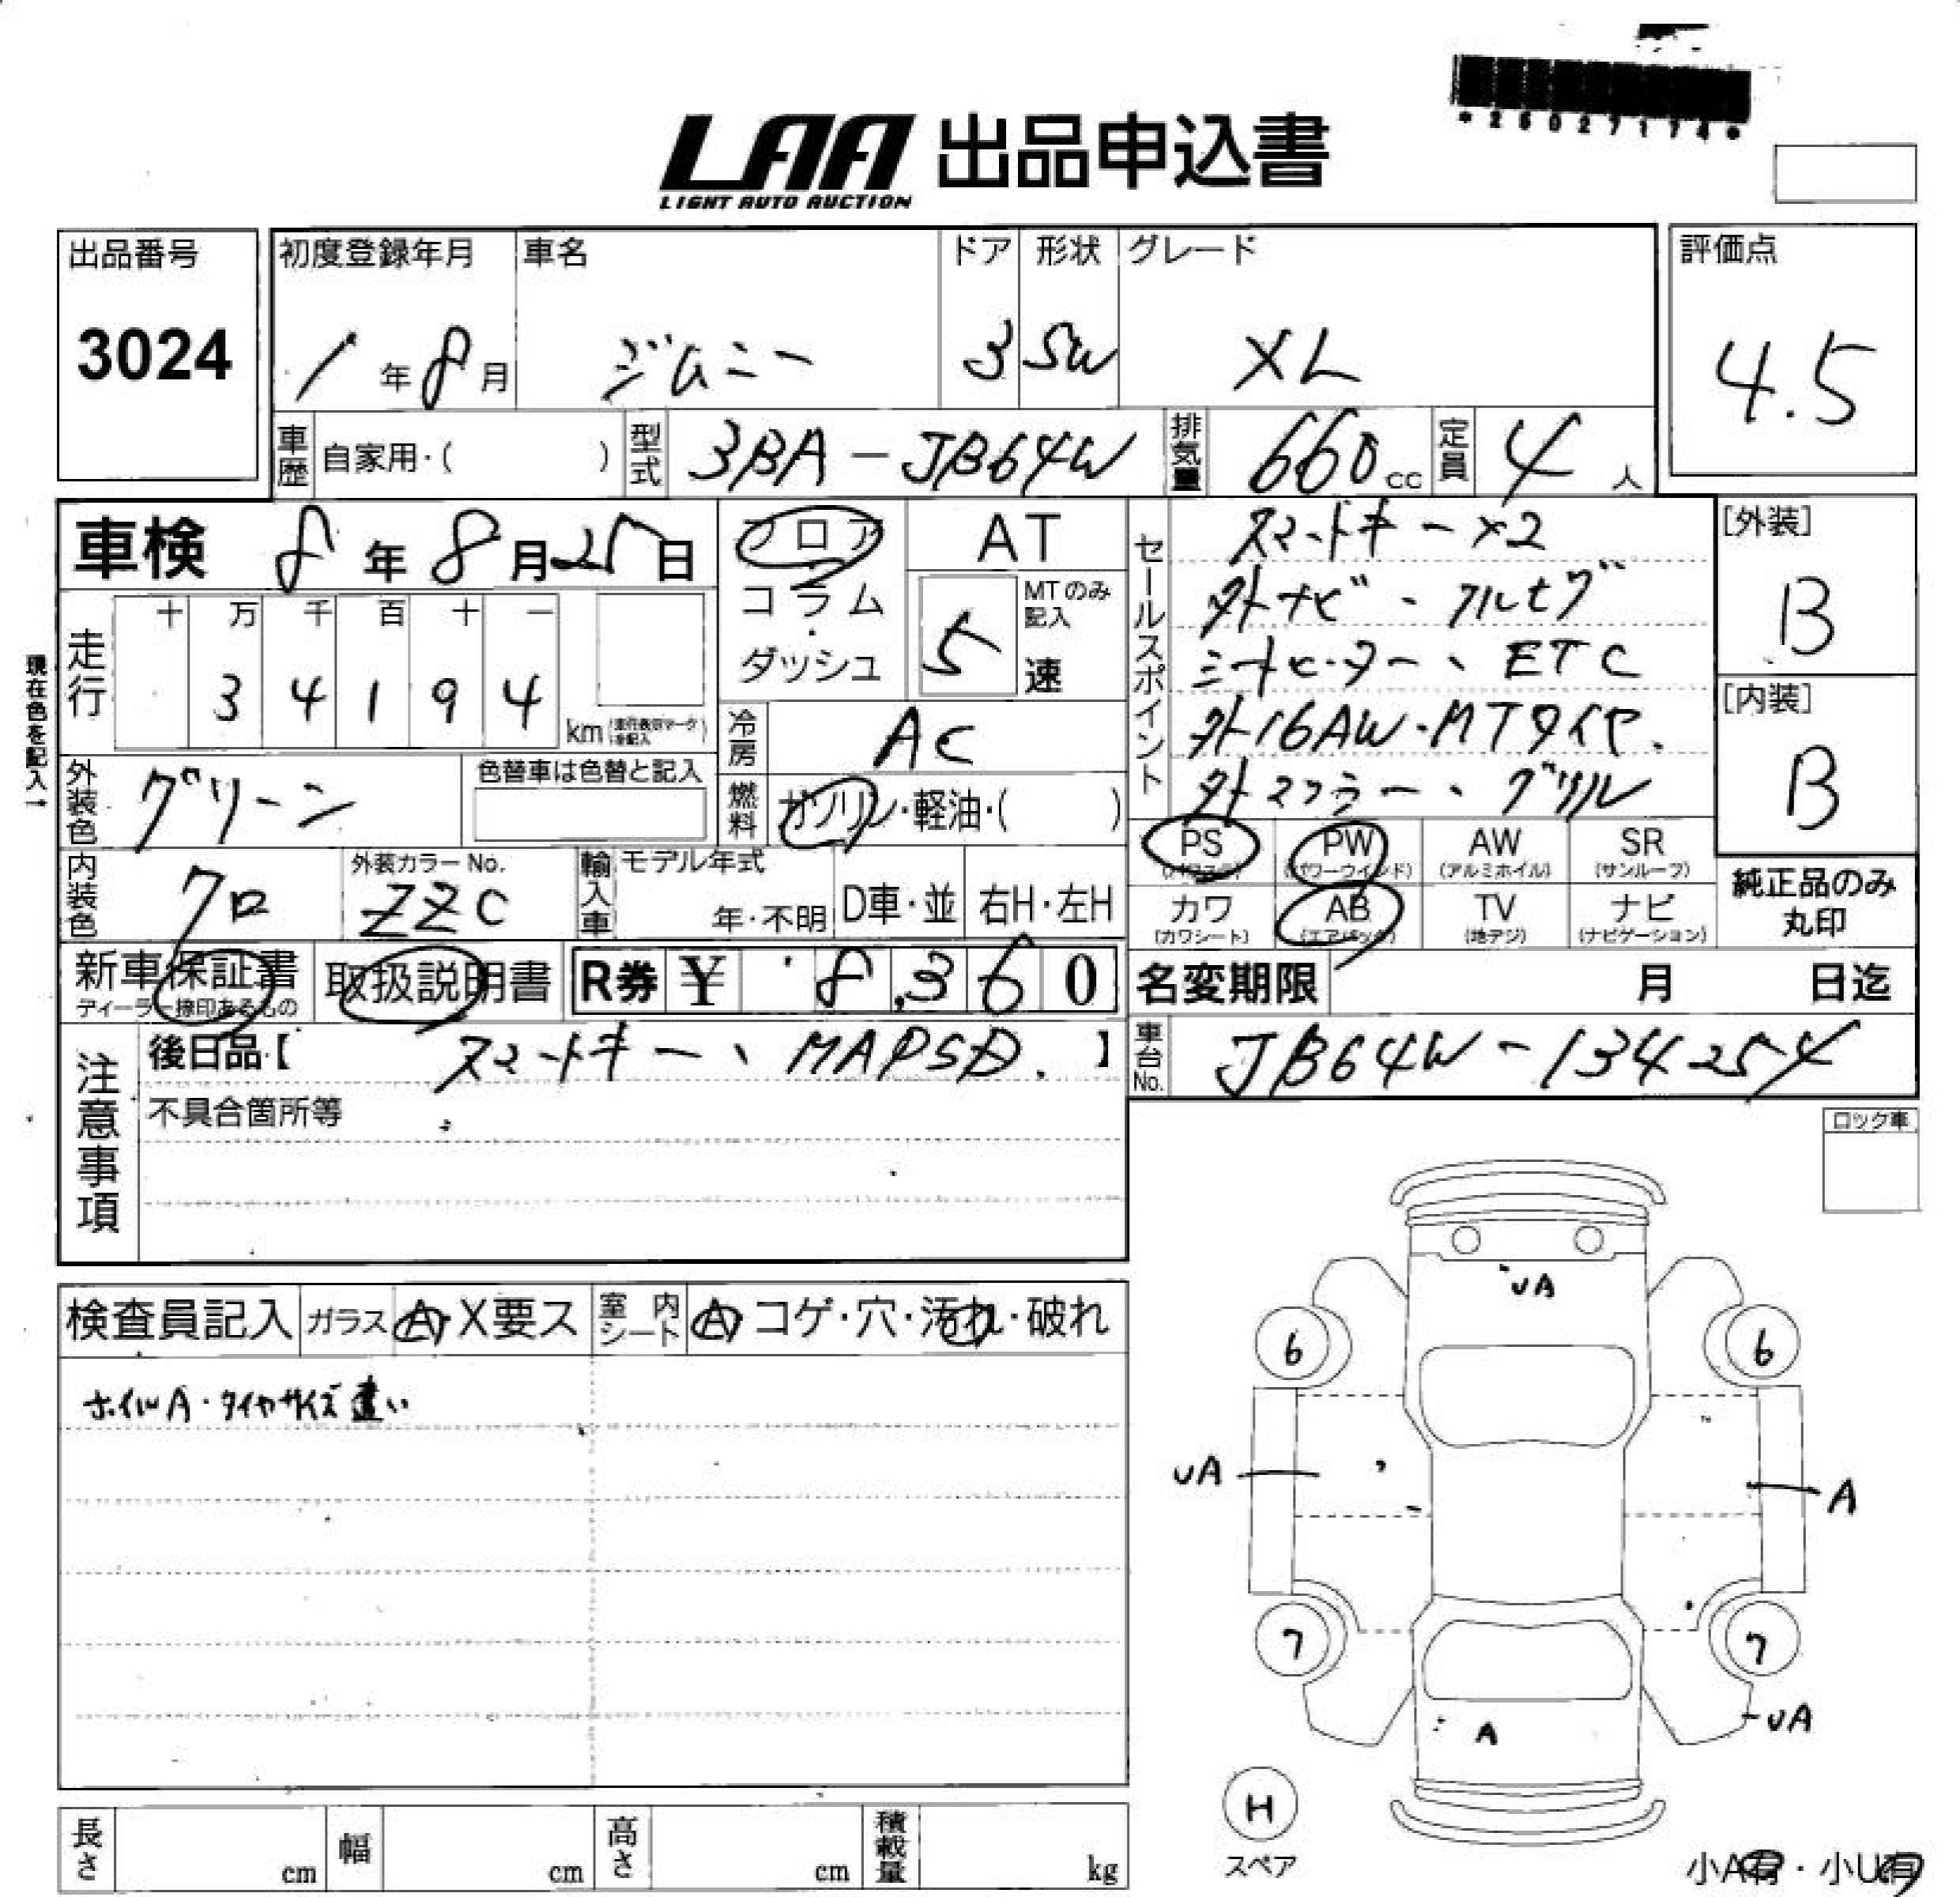 *26027174*
LAA 出品申込書
LIGHT AUTO AUCTION
出品番号
3024
初度登録年月
1年8月
車名
ジムニー
ドア
3
形状
SW
グレード
XL
評価点
4.5
車歴 自家用・( )
型式 3BA-JB64W
排気量 660cc
定員 4人
車検 8年8月25日
フロア
コラム
ダッシュ
AT
5
MTのみ記入
速
現在色を記入→
走行
十 万 千 百 十 一
3 4 1 9 4
km
冷房 AC
外装色 グリーン
色替車は色替と記入
燃料 ガソリン・軽油・( )
内装色 クロ
外装カラーNo.
ZZC
輸入車 モデル年式
年・不明
D車・並
右H・左H
セールスポイント
スマートキー×2
外ナビ・フルセグ
シートヒーター、ETC
外16AW・MTタイヤ.
外マフラー、グリル
[外装]
B
[内装]
B
PS PW AW SR
(パワステ) (パワーウインド) (アルミホイル) (サンルーフ)
カワ AB TV ナビ
(カワシート) (エアバック) (地デジ) (ナビゲーション)
純正品のみ
丸印
新車保証書
ディーラー捺印あるもの
取扱説明書
R券 ¥ 8,360
名変期限 月 日迄
注意事項
後日品【 スマートキー、MAPSD. 】
車台No. JB64W-134254
不具合箇所等
ロック車
検査員記入
ガラス A・X要ス
室内シート A・コゲ・穴・汚れ・破れ
ホイルA・タイヤサイズ違い
UA
6 6
UA A
7 7
UA
A
H
スペア
長さ cm
幅 cm
高さ cm
積載量 kg
小A有・小U有